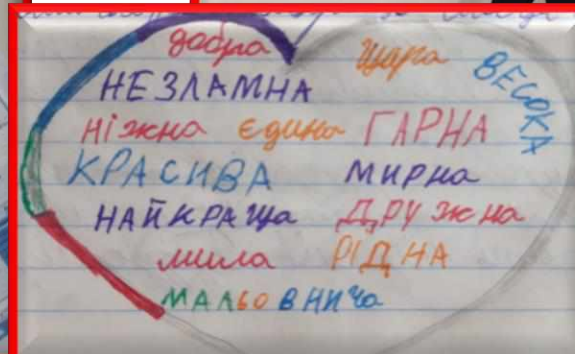 добра щира ВЕСОКА
НЕЗЛАМНА
ніжна єдина ГАРНА
КРАСИВА мирна
НАЙКРАща ДРУжна
мила РІДНА
МАЛЬОВНИЧа